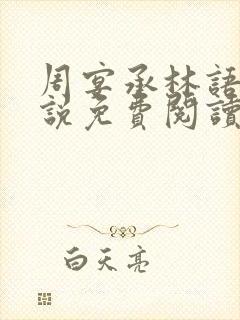 周宴承林語
說免費閱讀
白天亮